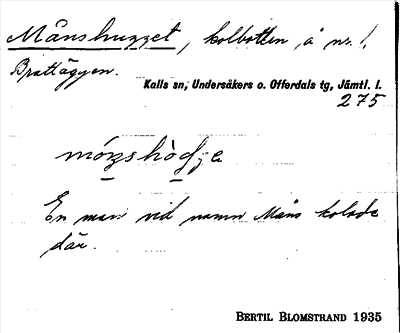 Månshugget, kolbotten, å nr. 1,
Brattäggen.
Kalls sn, Undersåkers o. Offerdals tg, Jämtl. l.
275
En man vid namn Måns kolade
där.
BERTIL BLOMSTRAND 1935